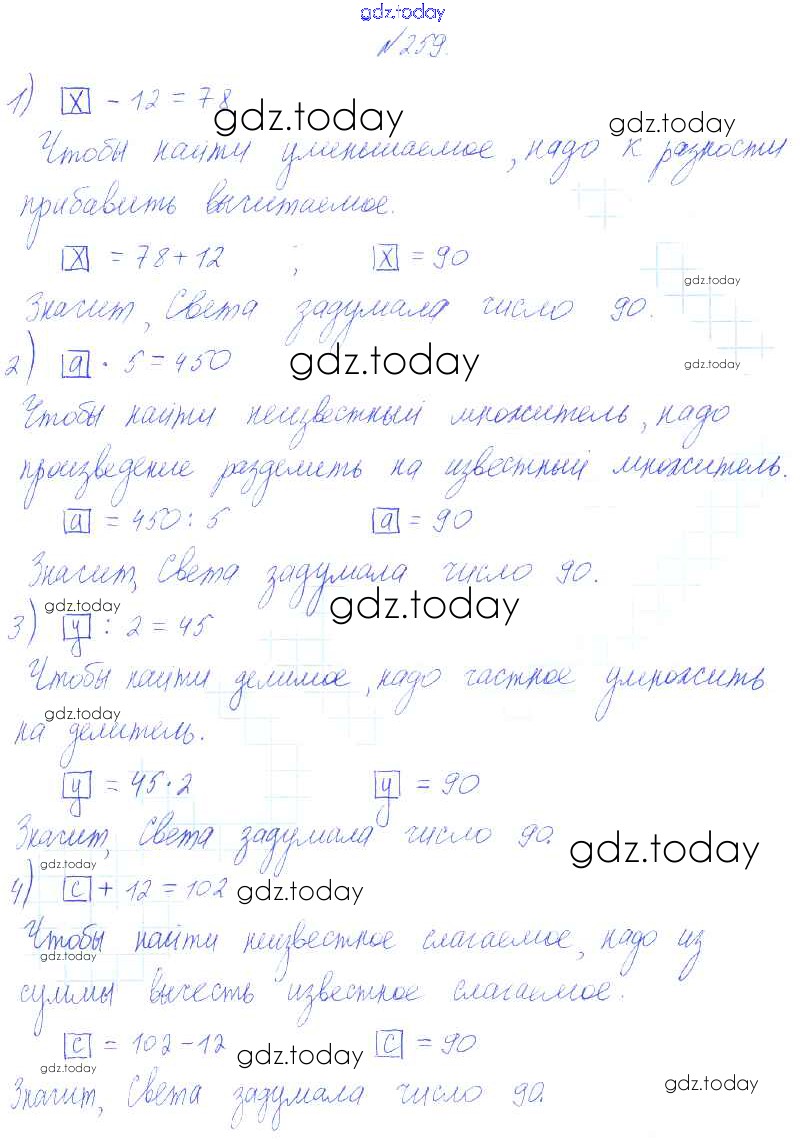 gdz.today
№259.
1) x - 12 = 78
gdz.today gdz.today
Чтобы найти уменьшаемое, надо к разности
прибавить вычитаемое.
x = 78 + 12 ; x = 90
gdz.today
Значит, Света задумала число 90.
2) a · 5 = 450
gdz.today gdz.today
Чтобы найти неизвестный множитель, надо
произведение разделить на известный множитель.
a = 450 : 5 a = 90
Значит, Света задумала число 90.
gdz.today gdz.today
3) y : 2 = 45
Чтобы найти делимое, надо частное умножить
gdz.today
на делитель.
y = 45 · 2 y = 90
Значит, Света задумала число 90.
gdz.today gdz.today
4) c + 12 = 102
gdz.today
Чтобы найти неизвестное слагаемое, надо из
gdz.today
суммы вычесть известное слагаемое.
c = 102 - 12 c = 90
gdz.today gdz.today
Значит, Света задумала число 90.